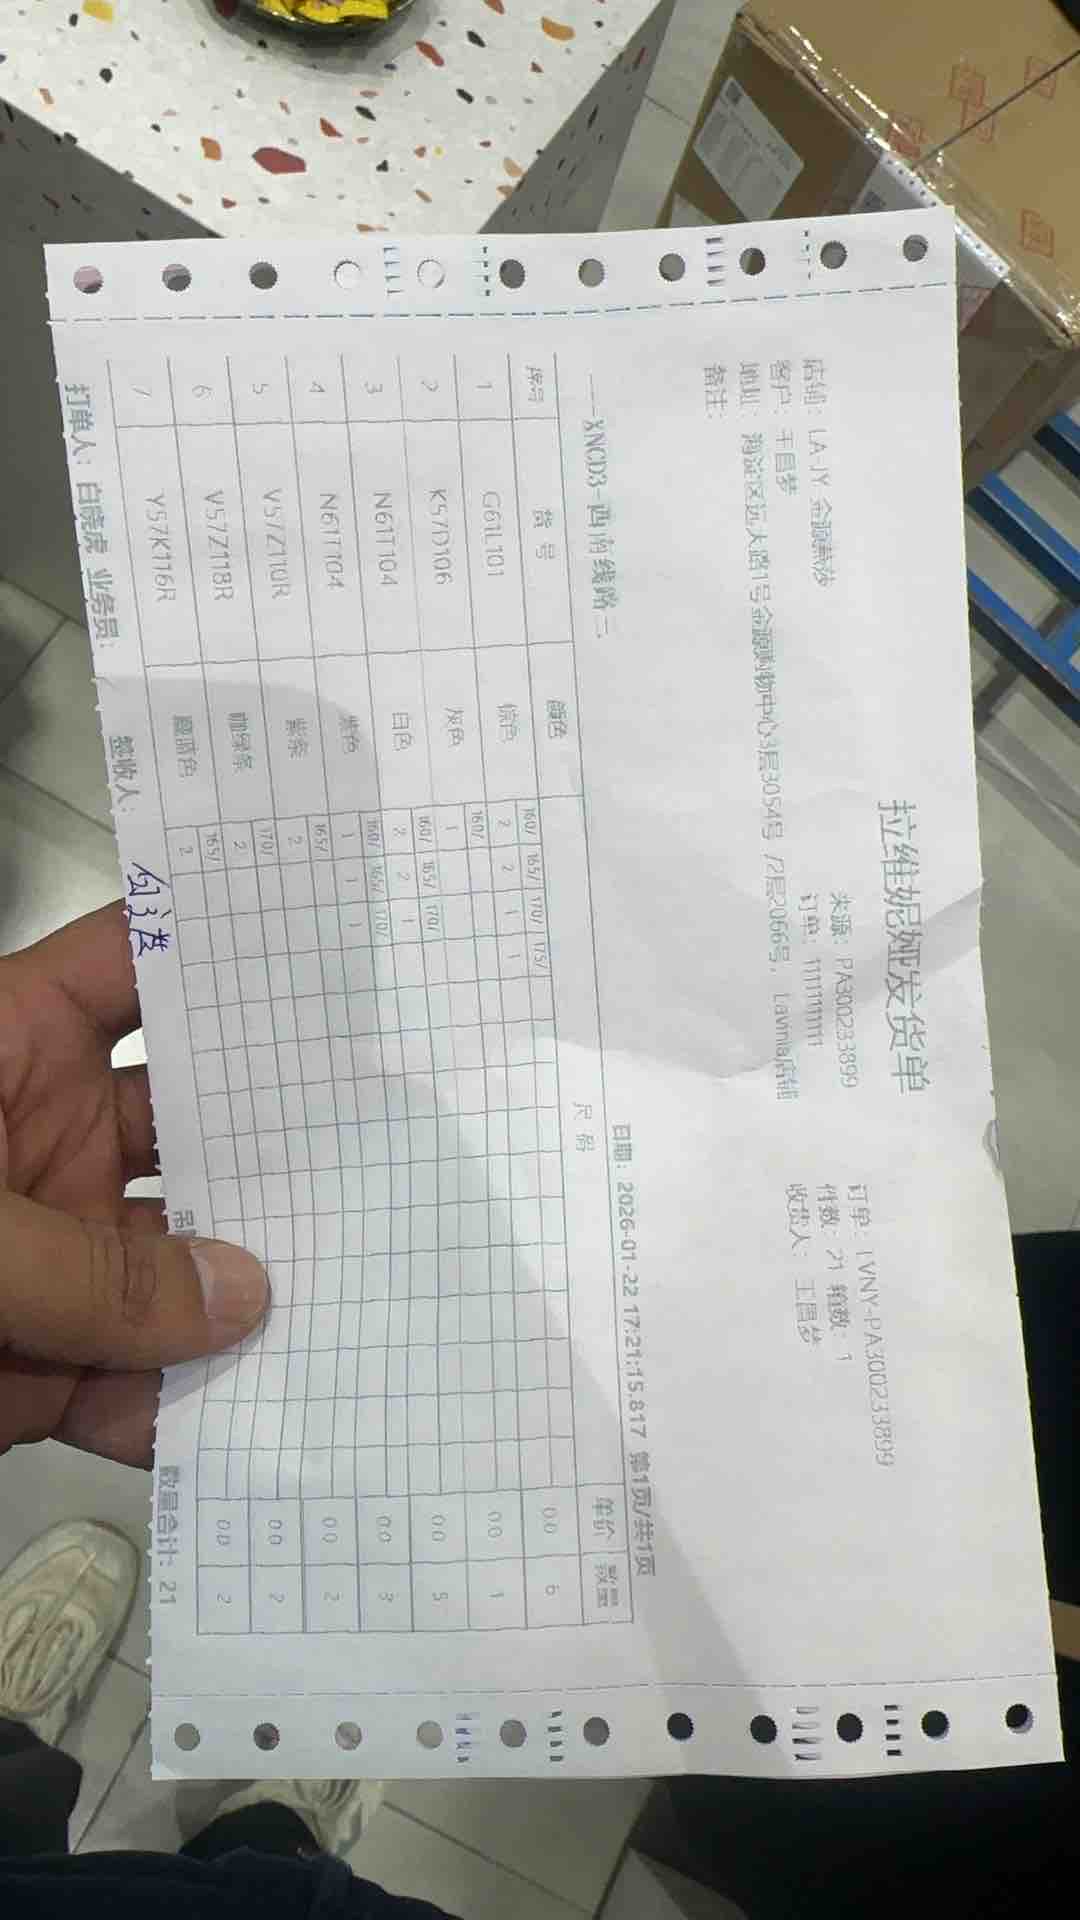 拉维妮娅发货单
来源: PA300233899 订单: LVNY-PA300233899
店铺: LA-JY 金源燕莎 订单: 1111111111 件数: 21 箱数: 1
客户: 王昌梦 收货人: 王昌梦
地址: 海淀区远大路1号金源购物中心3层3054号 /2层2066号, Lavinia店铺
备注:
---XNCD3-西南线路二 日期: 2026-01-22 17:21:15.817 第1页/共1页
序号 货号 颜色 尺码 单价 数量
160/ 165/ 170/ 175/
1 G61L101 棕色 2 2 1 1 0.0 6
160/
2 K57D106 灰色 1 0.0 1
160/ 165/ 170/
3 N61T104 白色 2 2 1 0.0 5
160/ 165/ 170/
4 N61T104 紫色 1 1 1 0.0 3
165/
5 V57Z110R 紫条 2 0.0 2
170/
6 V57Z118R 咖绿条 2 0.0 2
165/
7 Y57K116R 雾蓝色 2 0.0 2
打单人: 白晓虎 业务员: 签收人: 吊 数量合计: 21